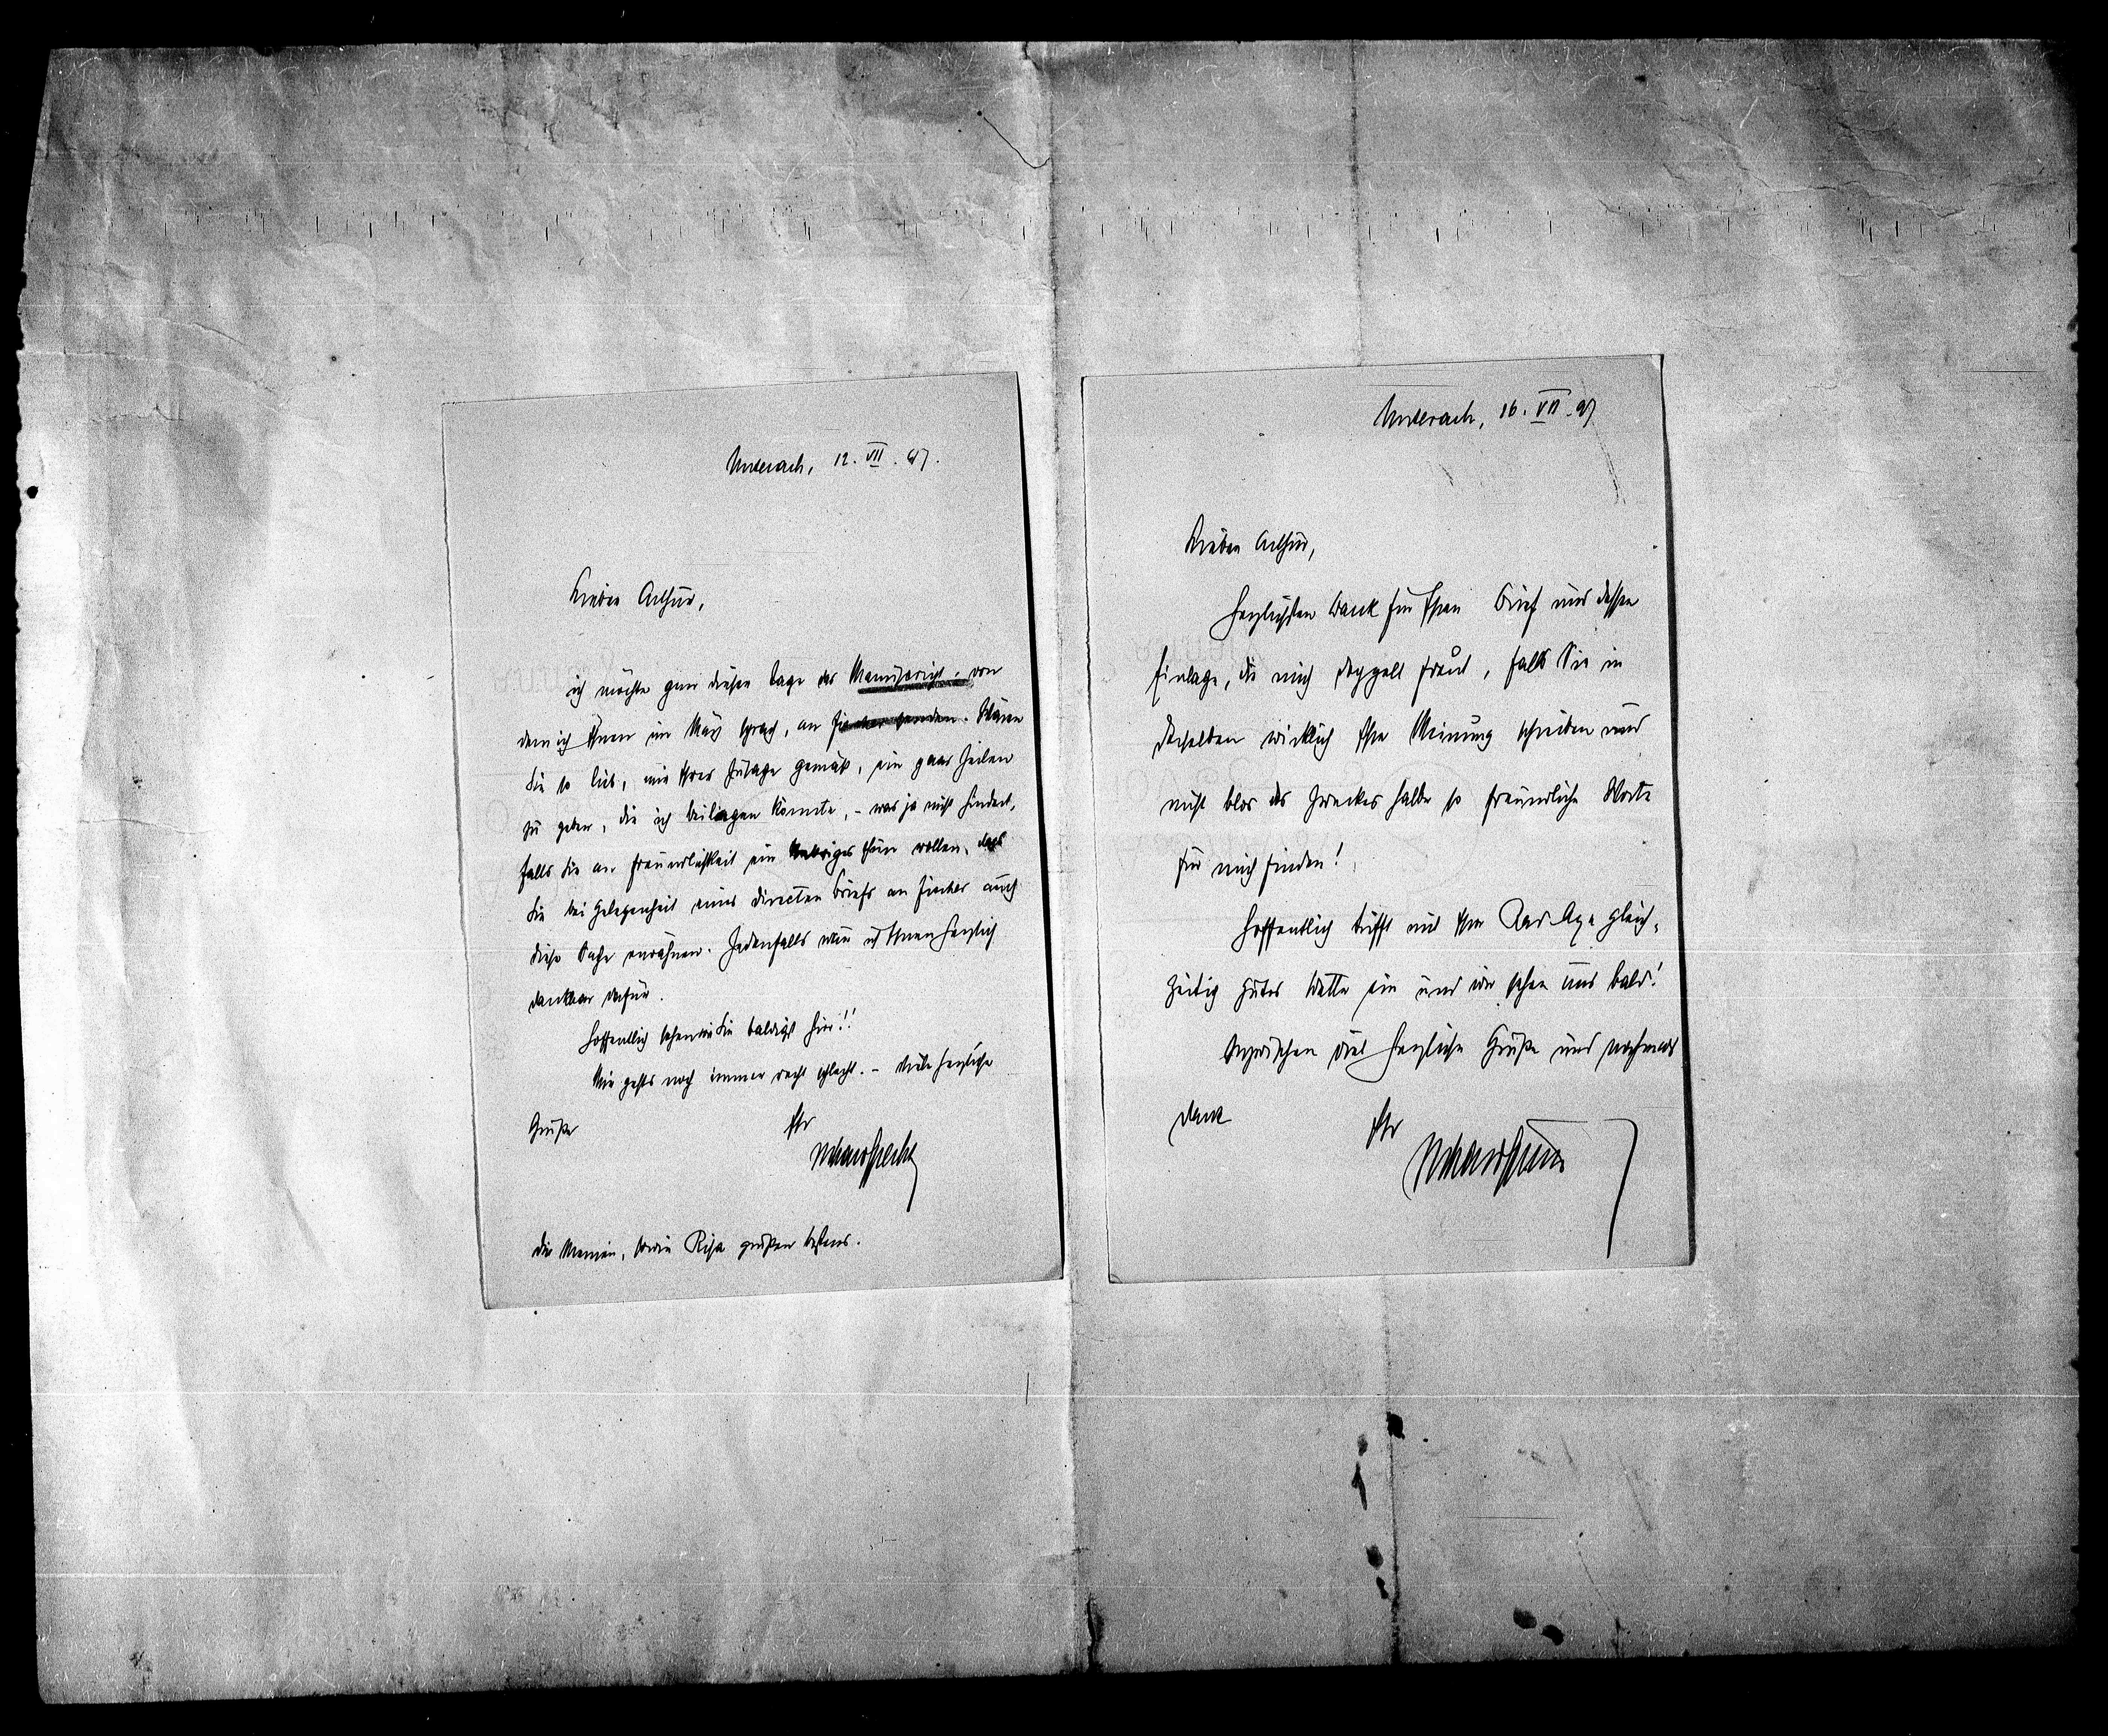 Unterach, 12. VII. 97.
Lieber Arthur,
ich möchte gern dieser Tage das Manuscript, von
dem ich Ihnen im März sprach, an Fischer senden. Wären
Sie so lieb, mir Ihrer Zusage gemäß, ein paar Zeilen
zu geben, die ich beilegen könnte, – was ja nicht hindert,
falls Sie an Freundlichkeit ein Uebriges thun wollen, dass
Sie bei Gelegenheit eines directen Briefs an Fischer auch
diese Sache erwähnen. Jedenfalls bin ich Ihnen herzlich
dankbar dafür.
Hoffentlich sehen wir Sie baldigst hier!!
Mir gehts noch immer recht schlecht. – Viele herzliche
Grüße
Ihr
Die Meinen, sowie Risa grüßen bestens.
Unterach, 16. VII. 97
Lieber Arthur,
Herzlichsten Dank für Ihren Brief und dessen
Einlage, die mich doppelt freut, falls Sie in
derselben wirklich Ihre Meinung schreiben und
nicht blos des Zweckes halber so freundliche Worte
für mich finden!
Hoffentlich trifft mit Ihrer gleich-
zeitig gutes Wetter ein und wir sehen uns bald!
Inzwischen viel herzliche Grüße und nochmals
Dank
Ihr